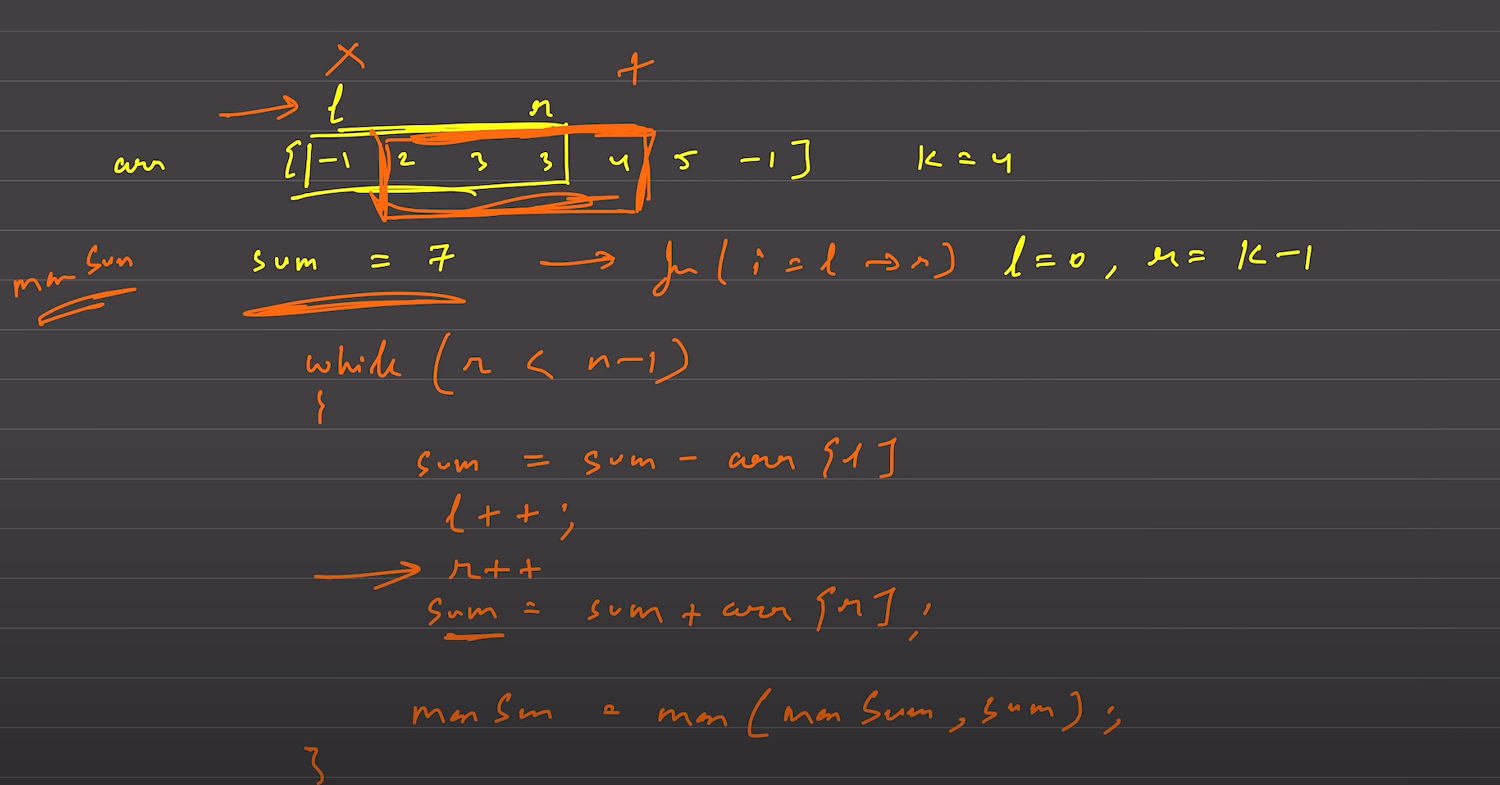 l r
arr [ -1 2 3 3 4 5 -1 ] k = 4
maxSum sum = 7 → for ( i = l → r ) l = 0 , r = k-1
while ( r < n-1 )
{
sum = sum - arr [l]
l++ ;
→ r++
sum = sum + arr [r] ;
maxSum = max ( maxSum , sum ) ;
}